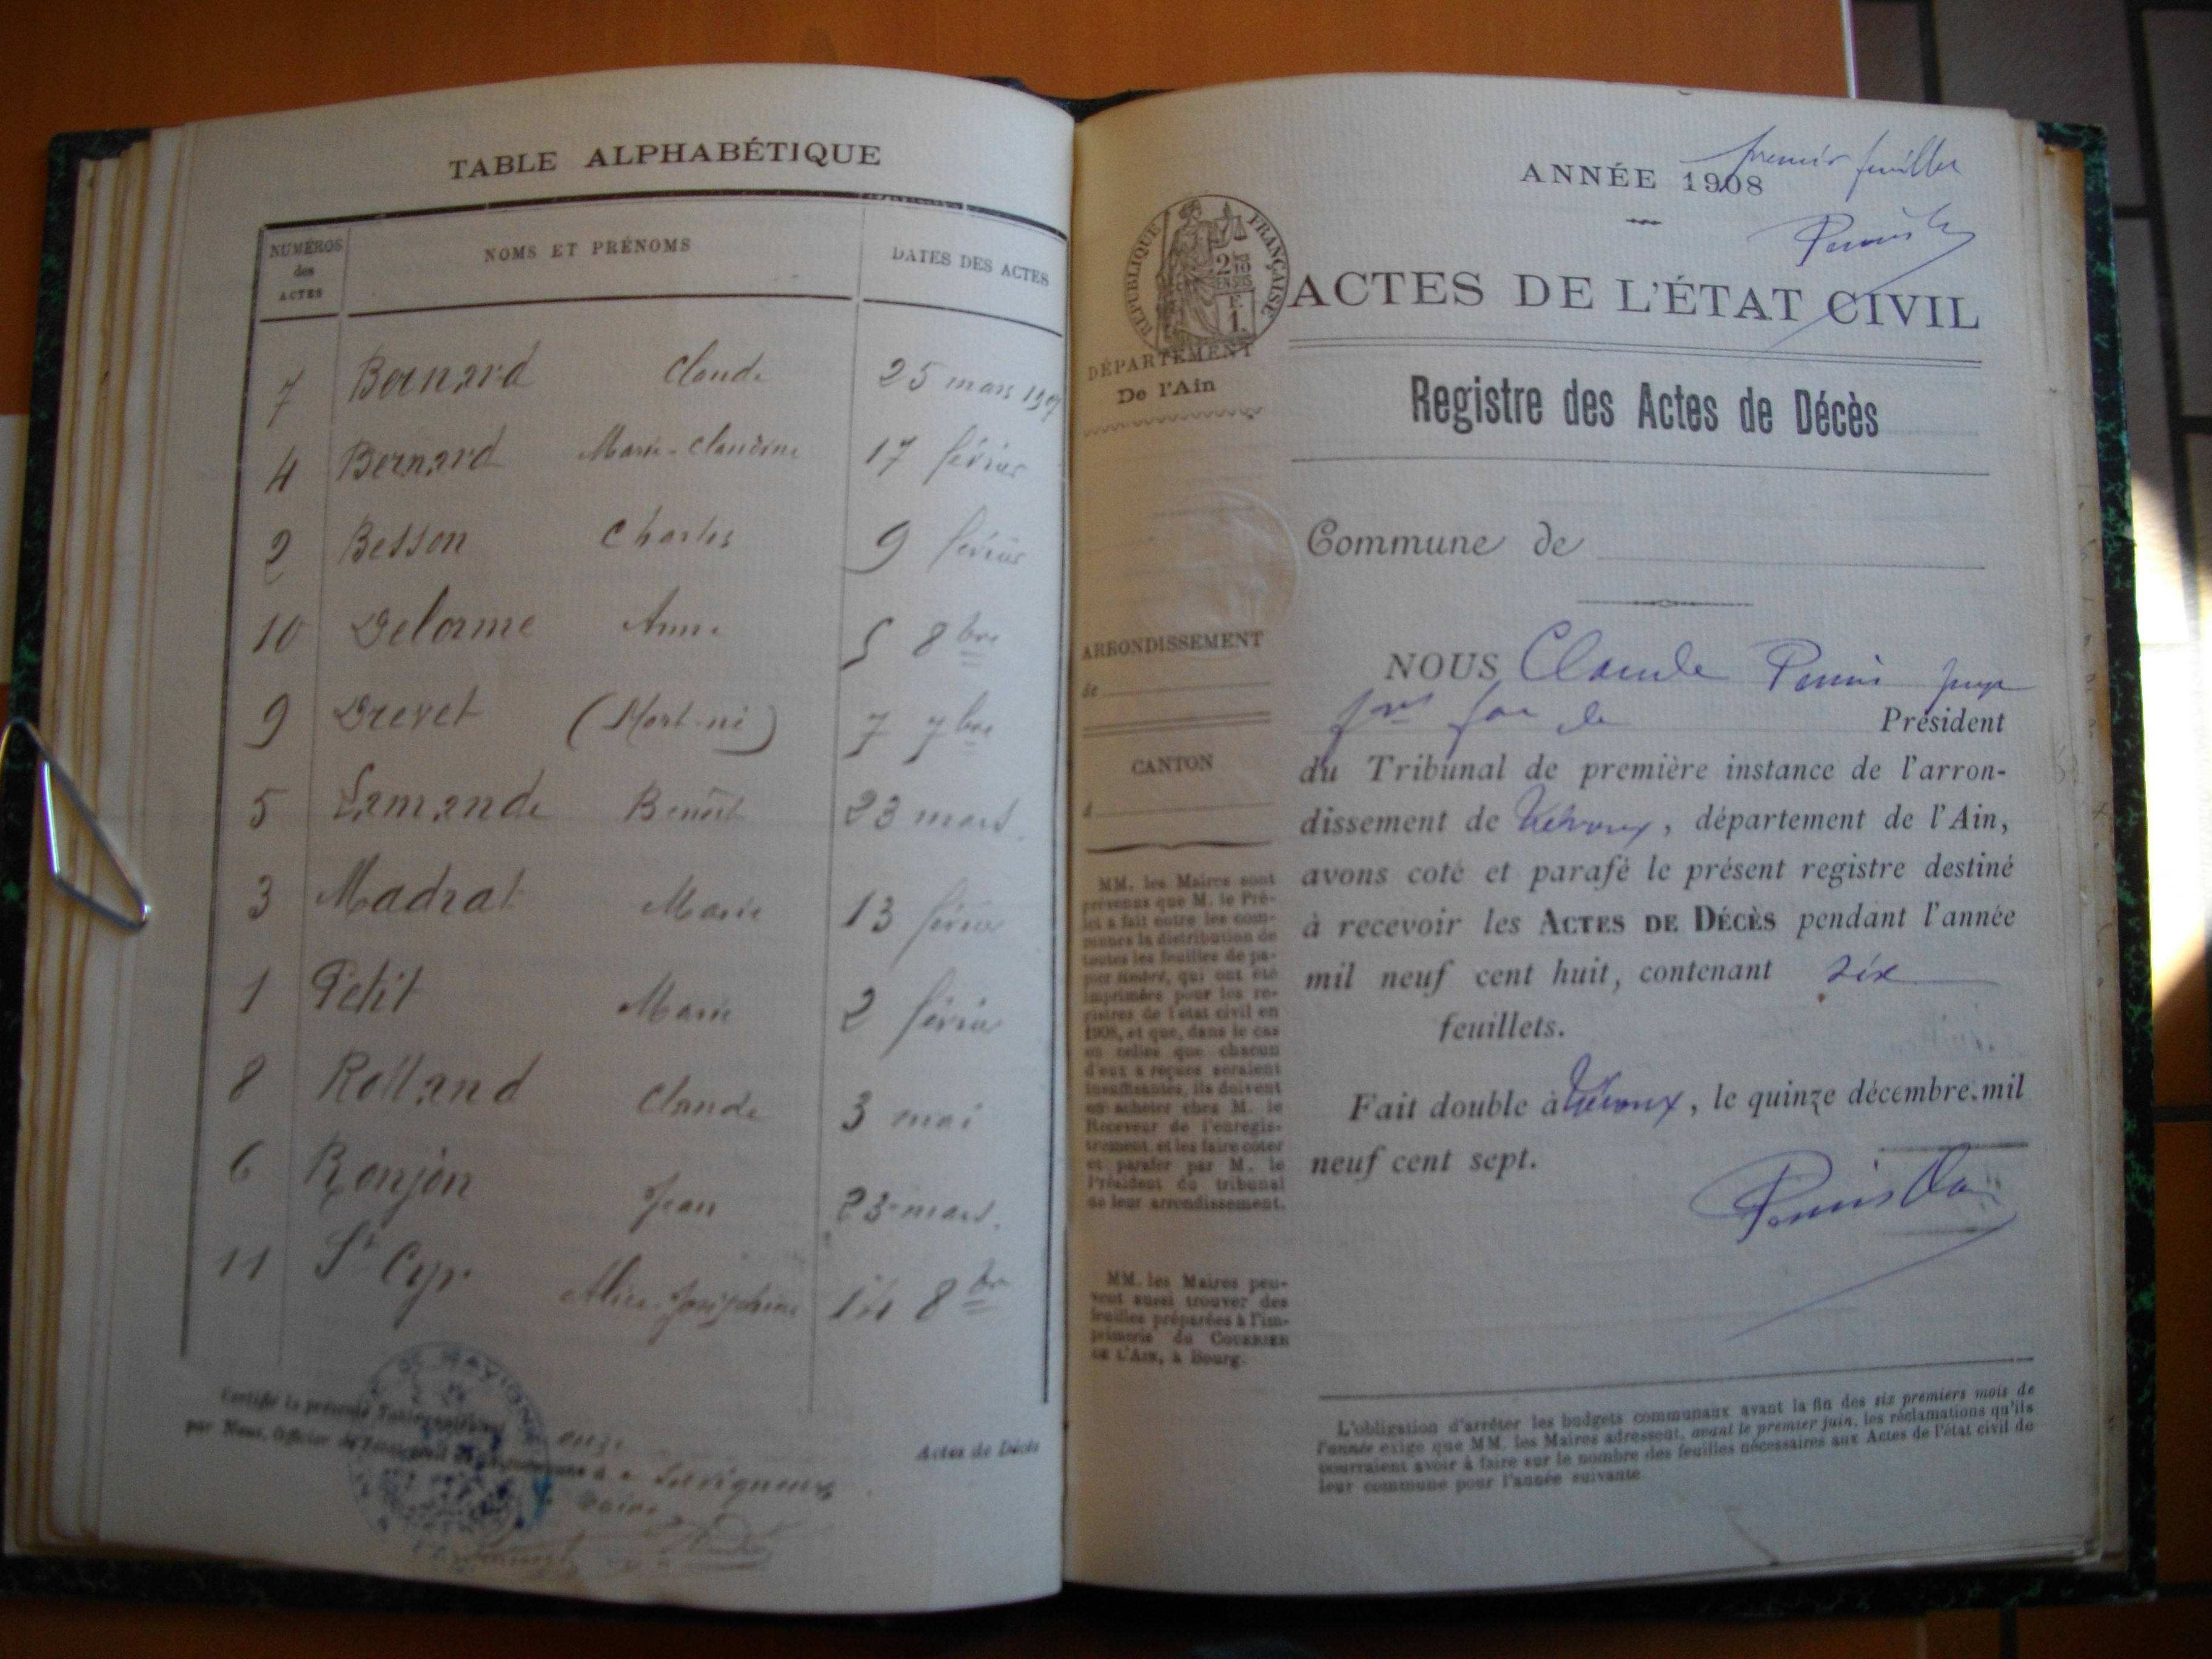 TABLE ALPHABÉTIQUE
NUMÉROS des ACTES
NOMS ET PRÉNOMS
DATES DES ACTES
7 Bernard Claude 25 mars 1907
4 Bernard Marie-Claudine 17 février
2 Besson Charles 9 février
10 Delorme Anne 5 8bre
9 Drevet (Mort-né) 7 7bre
5 Lamande Benoît 23 mars
3 Madrat Marie 13 février
1 Petit Marie 2 février
8 Rolland Claude 3 mai
6 Ronjon Jean 23 mars.
11 St Cyr Alice-Joséphine 14 8bre
Certifié la présente Table
par Nous, Officier de l'état civil à Savigneux
Actes de Décès
premier feuillet
ANNÉE 1908
RÉPUBLIQUE FRANÇAISE
ACTES DE L'ÉTAT CIVIL
DÉPARTEMENT
De l'Ain
Registre des Actes de Décès
Commune de
ARRONDISSEMENT
de
CANTON
d
NOUS Claude Perrin juge
Président
du Tribunal de première instance de l'arron-
dissement de Trévoux, département de l'Ain,
avons coté et parafé le présent registre destiné
à recevoir les ACTES DE DÉCÈS pendant l'année
mil neuf cent huit, contenant six
feuillets.
Fait double à Trévoux, le quinze décembre mil
neuf cent sept.
MM. les Maires sont
prévenus que M. le Pré-
fet a fait entre les com-
munes la distribution de
toutes les feuilles de pa-
pier timbré, qui ont été
imprimées pour les re-
gistres de l'état civil en
1908, et que, dans le cas
où celles que chacun
d'eux a reçues seraient
insuffisantes, ils doivent
en acheter chez M. le
Receveur de l'enregis-
trement et les faire coter
et parafer par M. le
Président du tribunal
de leur arrondissement.
MM. les Maires peu-
vent aussi trouver des
feuilles préparées à l'im-
primerie du COURRIER
DE L'AIN, à Bourg.
L'obligation d'arrêter les budgets communaux avant la fin des six premiers mois de
l'année exige que MM. les Maires adressent, avant le premier juin, les réclamations qu'ils
pourraient avoir à faire sur le nombre des feuilles nécessaires aux Actes de l'état civil de
leur commune pour l'année suivante.